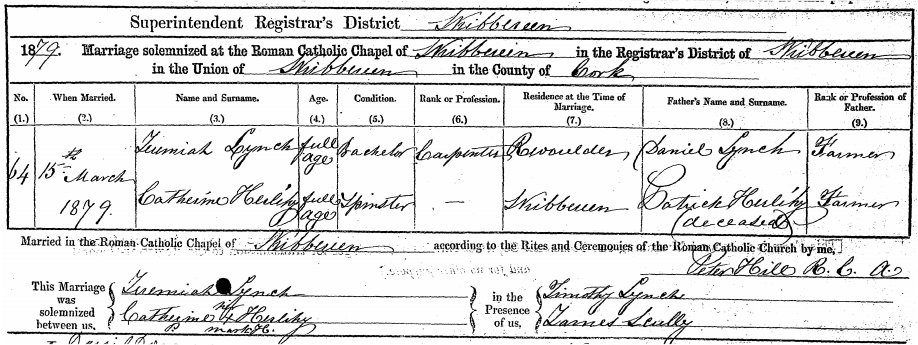 Superintendent Registrar's District Skibbereen
1879. Marriage solemnized at the Roman Catholic Chapel of Skibbereen in the Registrar's District of Skibbereen
in the Union of Skibbereen in the County of Cork
No. When Married. Name and Surname. Age. Condition. Rank or Profession. Residence at the Time of Marriage. Father's Name and Surname. Rank or Profession of Father.
(1.) (2.) (3.) (4.) (5.) (6.) (7.) (8.) (9.)
64 15th March 1879. Jeremiah Lynch full age Bachelor Carpenter Daniel Lynch Farmer
Catherine Herlihy full age Spinster — Skibbereen Patrick Herlihy (deceased) Farmer
Married in the Roman Catholic Chapel of Skibbereen according to the Rites and Ceremonies of the Roman Catholic Church by me,
Peter Hill R. C. A.
This Marriage was solemnized between us, Jeremiah Lynch in the Presence of us, Timothy Lynch
Catherine X Herlihy James Scully
mark